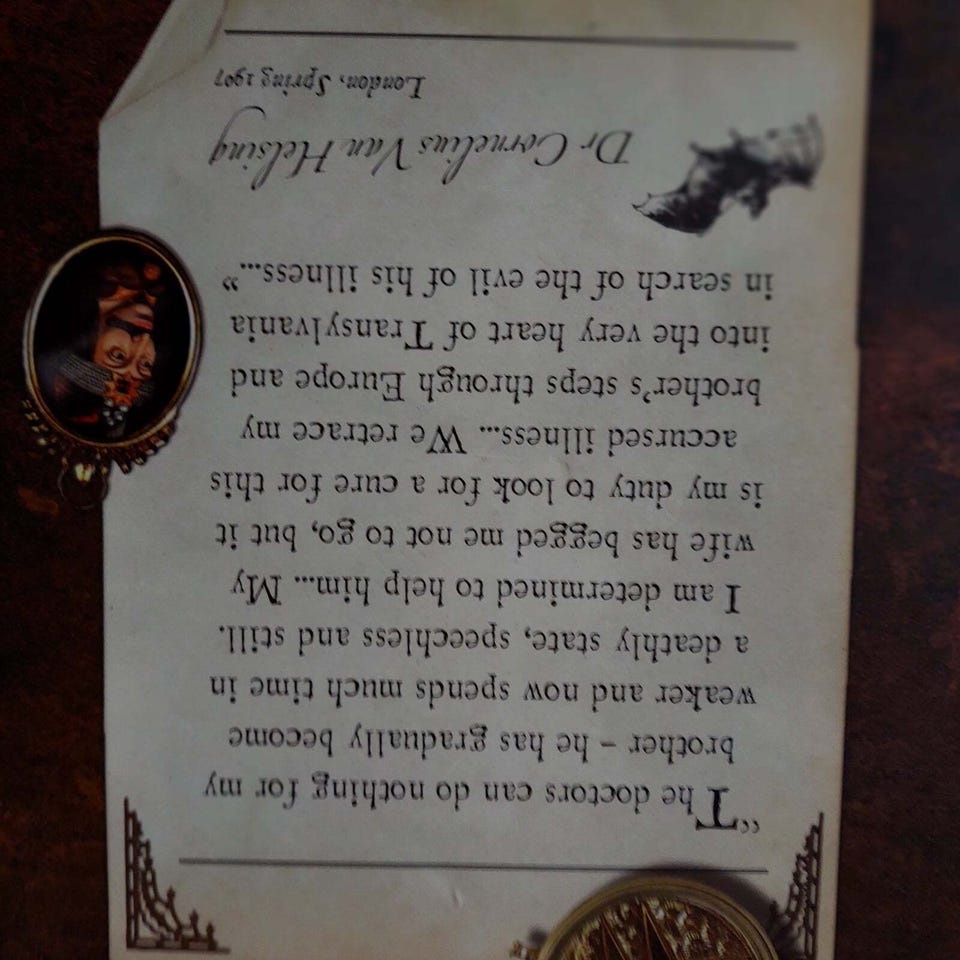 “The doctors can do nothing for my
brother – he has gradually become
weaker and now spends much time in
a deathly state, speechless and still.
I am determined to help him... My
wife has begged me not to go, but it
is my duty to look for a cure for this
accursed illness... We retrace my
brother’s steps through Europe and
into the very heart of Transylvania
in search of the evil of his illness...”
Dr Cornelius Van Helsing
London, Spring 1907